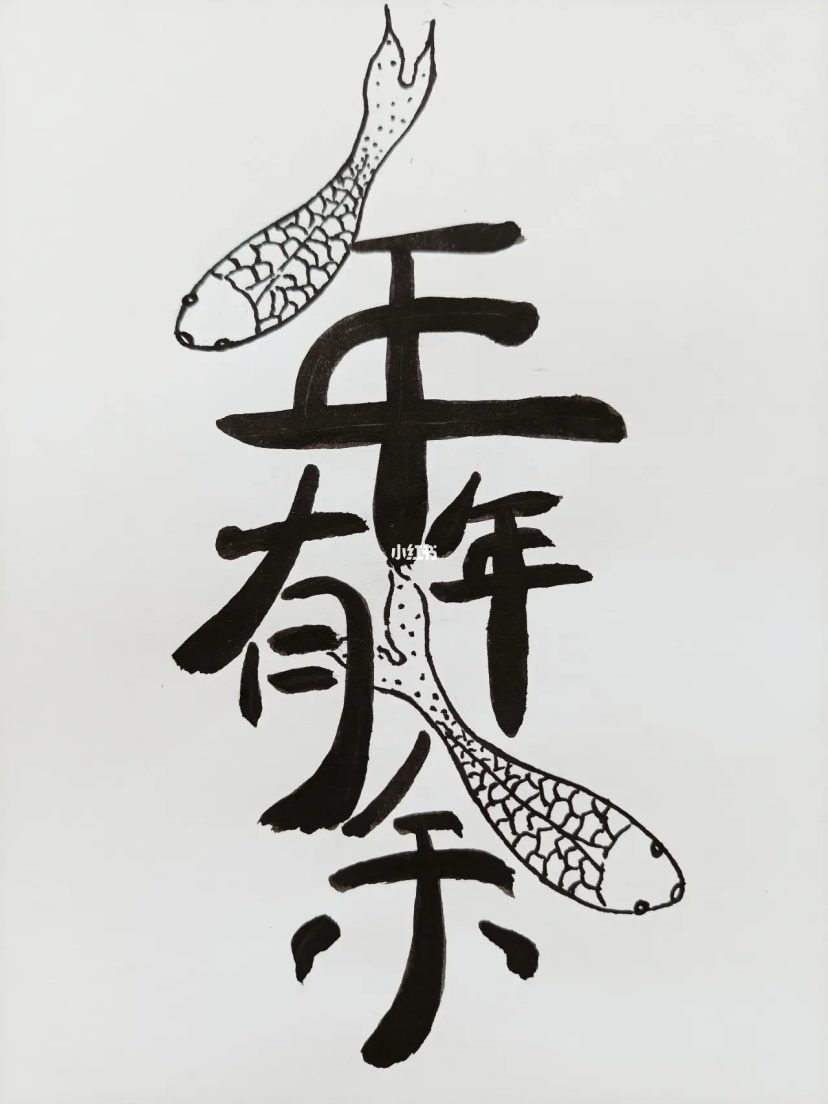 年
年
有
余
小红书